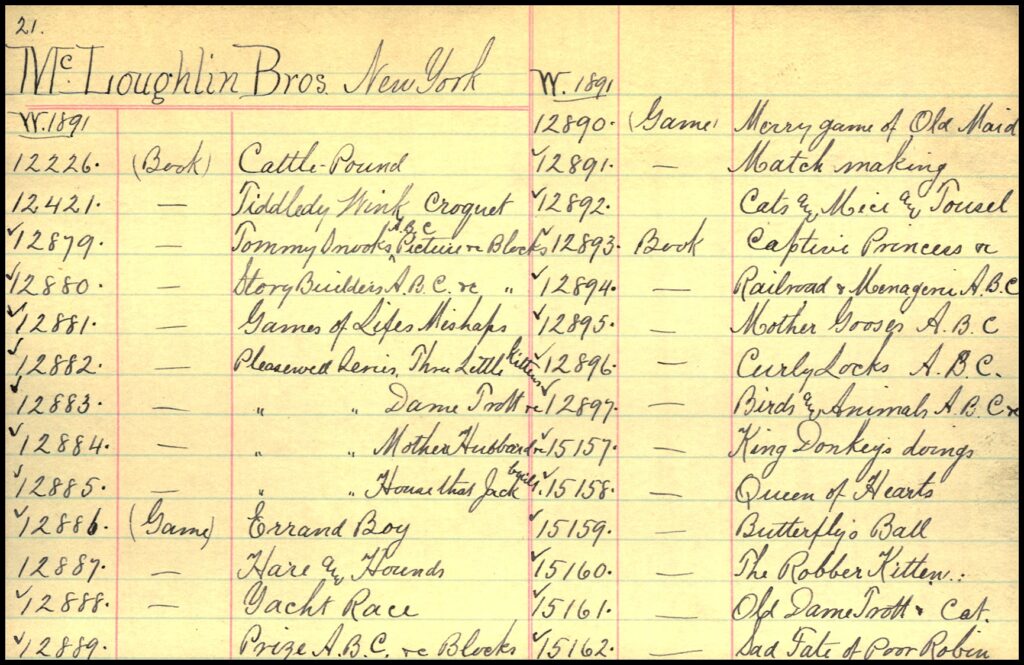 21.
McLoughlin Bros. New York
W. 1891
12226. (Book) Cattle-Pound
12421. — Tiddledy Wink Croquet
✓12879. — Tommy Snooks A.B.C Picture &c Blocks
✓12880. — Story Builders A.B.C. &c "
✓12881. — Games of Lifes Mishaps
✓12882. — Pleasewell Series, Three Little Kittens
✓12883. — " " Dame Trott &c
✓12884. — " " Mother Hubbard &c
✓12885. — " " House that Jack built.
✓12886. (Game) Errand Boy
12887. — Hare & Hounds
✓12888. — Yacht Race
✓12889. Prize A.B.C. &c Blocks
W. 1891
12890. (Game) Merry game of Old Maid
✓12891. — Match making
✓12892. — Cats & Mice & Tousel
✓12893. Book Captive Princess &c
✓12894. — Railroad & Menagerie A.B.C
✓12895. — Mother Gooses A.B.C
✓12896. — Curly Locks A.B.C.
✓12897. — Birds & Animals A.B.C &c
✓15157. — King Donkey's doings
✓15158. — Queen of Hearts
15159. — Butterfly's Ball
✓15160. — The Robber Kitten.
✓15161. — Old Dame Trott & Cat.
✓15162. — Sad Fate of Poor Robin